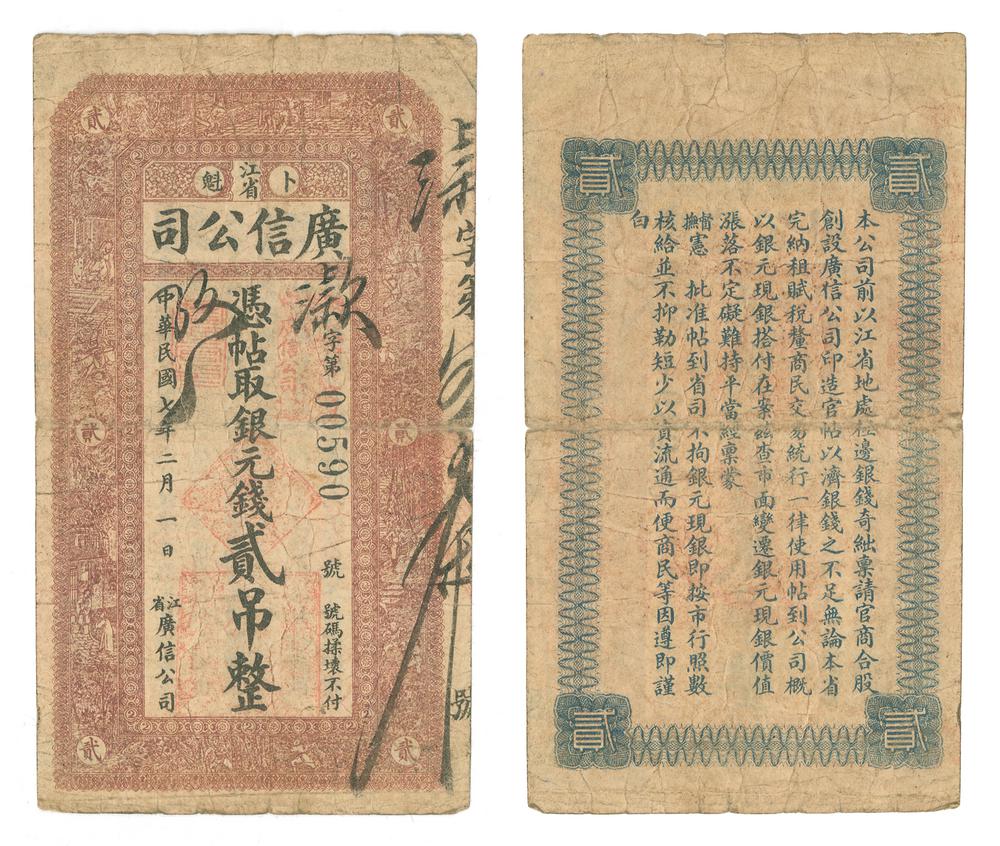 貳
貳
卜
江省
魁
廣信公司
字第
號
字第 00590 號 號碼揉壞不付
憑帖取銀元錢貳吊整
中華民國七年二月一日 江省廣信公司
貳
貳
貳
貳
貳
貳
本公司前以江省地處極邊銀錢奇絀禀請官商合股
創設廣信公司印造官帖以濟銀錢之不足無論本省
完納租賦稅釐商民交易統行一律使用帖到公司概
以銀元現銀搭付在案茲查市面變遷銀元現銀價值
漲落不定礙難持平當經禀蒙
督撫憲 批准帖到省司不拘銀元現銀即按市行照數
核給並不抑勒短少以資流通而便商民等因遵即謹
白
貳
貳